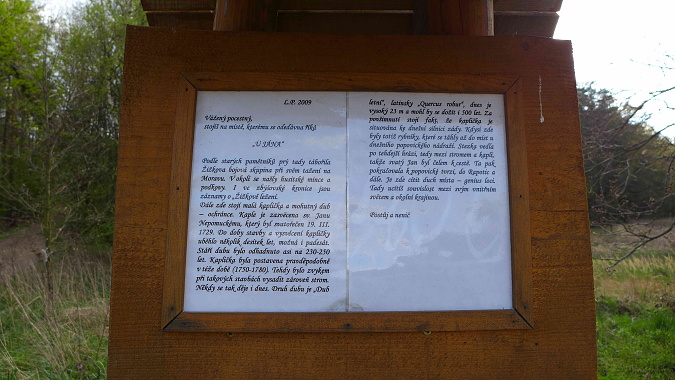 L.P. 2009
Vážený pocestný,
stojíš na místě, kterému se odedávna říká
„U JÁNA"
Podle starých pamětníků prý tady tábořila
Žižkova bojová skupina při svém tažení na
Moravu. V okolí se našly husitské mince a
podkovy. I ve zbýšovské kronice jsou
záznamy o „Žižkově ležení.
Dále zde stojí malá kaplička a mohutný dub
– ochránce. Kaple je zasvěcena sv. Janu
Nepomuckému, který byl svatořečen 19. III.
1729. Do doby stavby a vysvěcení kapličky
uběhlo několik desítek let, možná i padesát.
Stáří dubu bylo odhadnuto asi na 230-250
let. Kaplička byla postavena pravděpodobně
v téže době (1750-1780). Tehdy bylo zvykem
při takových stavbách vysadit zároveň strom.
Někdy se tak děje i dnes. Druh dubu je „Dub
letní", latinsky „Quercus robur", dnes je
vysoký 23 m a mohl by se dožít i 500 let. Za
povšimnutí stojí fakt, že kaplička je
situována ke dnešní silnici zády. Kdysi zde
byly totiž rybníky, které se táhly až do míst u
dnešního popovického nádraží. Stezka vedla
po tehdejší hrázi, tedy mezi stromem a kaplí,
takže svatý Jan byl čelem k cestě. Ta pak
pokračovala k popovické tvrzi, do Rapotic a
dále. Je zde cítit duch místa – genius loci.
Tady ucítíš souvislost mezi svým vnitřním
světem a okolní krajinou.
Postůj a nenič